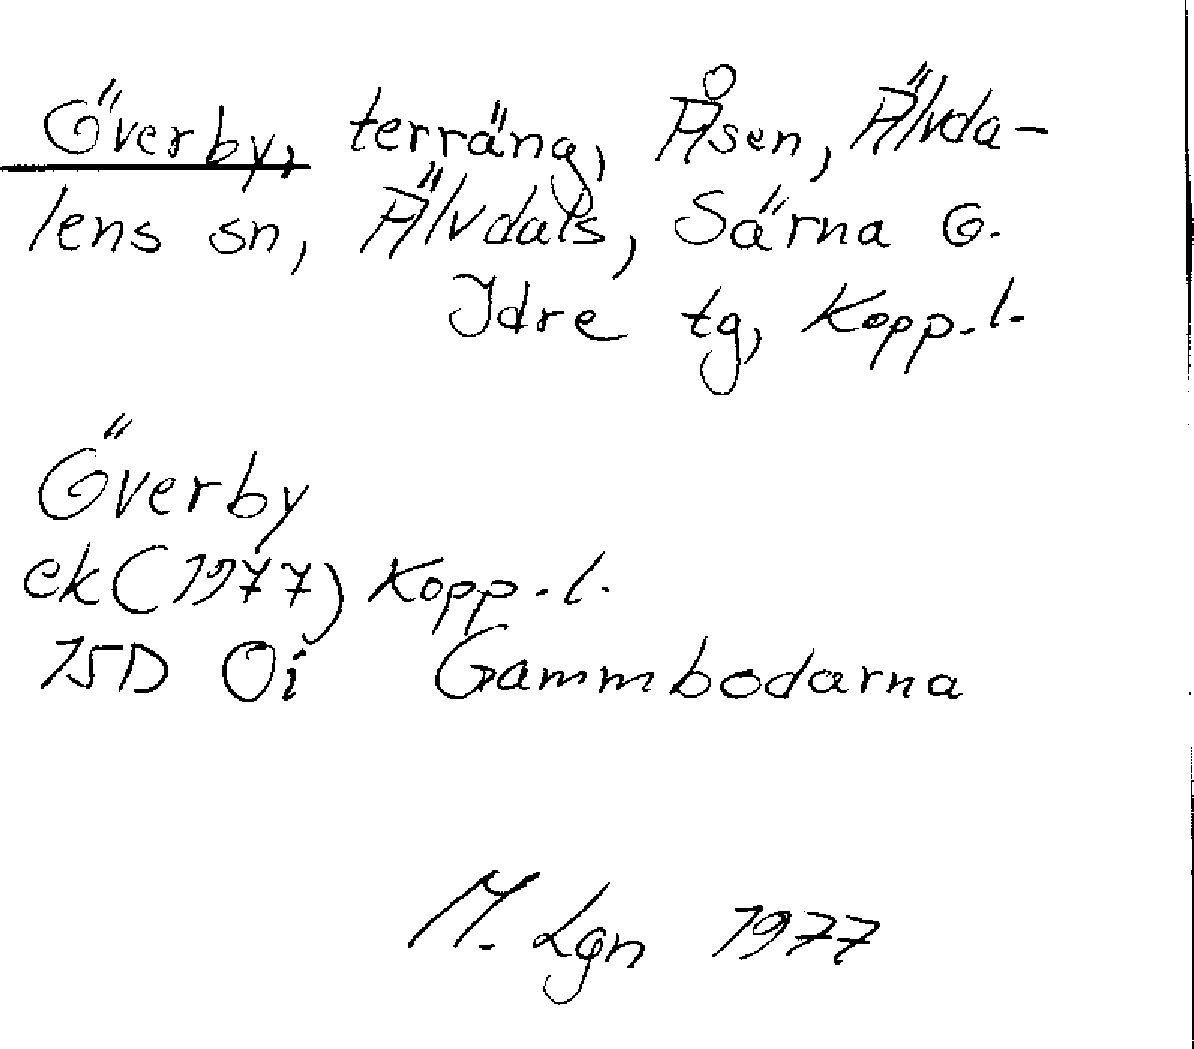 Överby, terräng, Åsen, Älvda-
lens sn, Älvdals, Särna o.
Idre tg, Kopp. l.
Överby
ek (1977) Kopp. l.
15D 0i Gammbodarna
M. Lgn 1977